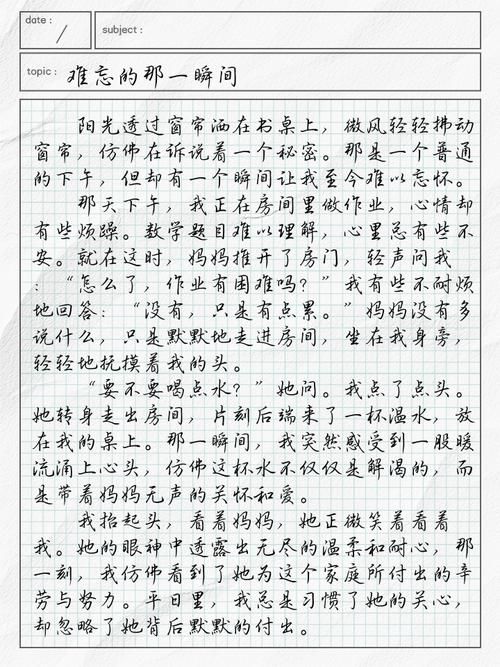 date :
/
subject :
topic : 难忘的那一瞬间
阳光透过窗帘洒在书桌上，微风轻轻拂动
窗帘，仿佛在诉说着一个秘密。那是一个普通
的下午，但却有一个瞬间让我至今难以忘怀。
那天下午，我正在房间里做作业，心情却
有些烦躁。数学题目难以理解，心里总有些不
安。就在这时，妈妈推开了房门，轻声问我
：“怎么了，作业有困难吗？”我有些不耐烦
地回答：“没有，只是有点累。”妈妈没有多
说什么，只是默默地走进房间，坐在我身旁，
轻轻地抚摸着我的头。
“要不要喝点水？”她问。我点了点头。
她转身走出房间，片刻后端来了一杯温水，放
在我的桌上。那一瞬间，我突然感受到一股暖
流涌上心头，仿佛这杯水不仅仅是解渴的，而
是带着妈妈无声的关怀和爱。
我抬起头，看着妈妈，她正微笑着看着
我。她的眼神中透露出无尽的温柔和耐心，那
一刻，我仿佛看到了她为这个家庭所付出的辛
劳与努力。平日里，我总是习惯了她的关心，
却忽略了她背后默默的付出。